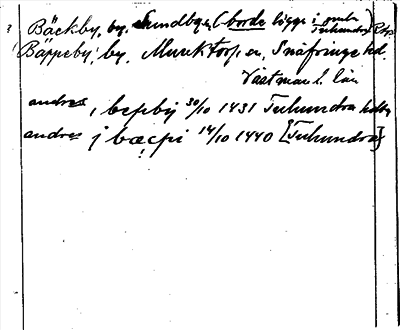 ? Bäckby, by. Lundby sn (borde ligga i gamla Tuhundra
! Bäppeby, by. Munktorp sn, Snäfringe hd.
Västman l. län
andres, i bepby 30/10 1431 Tuhundra hdby
andres j bæcpi 14/10 1440 [Tuhundra]